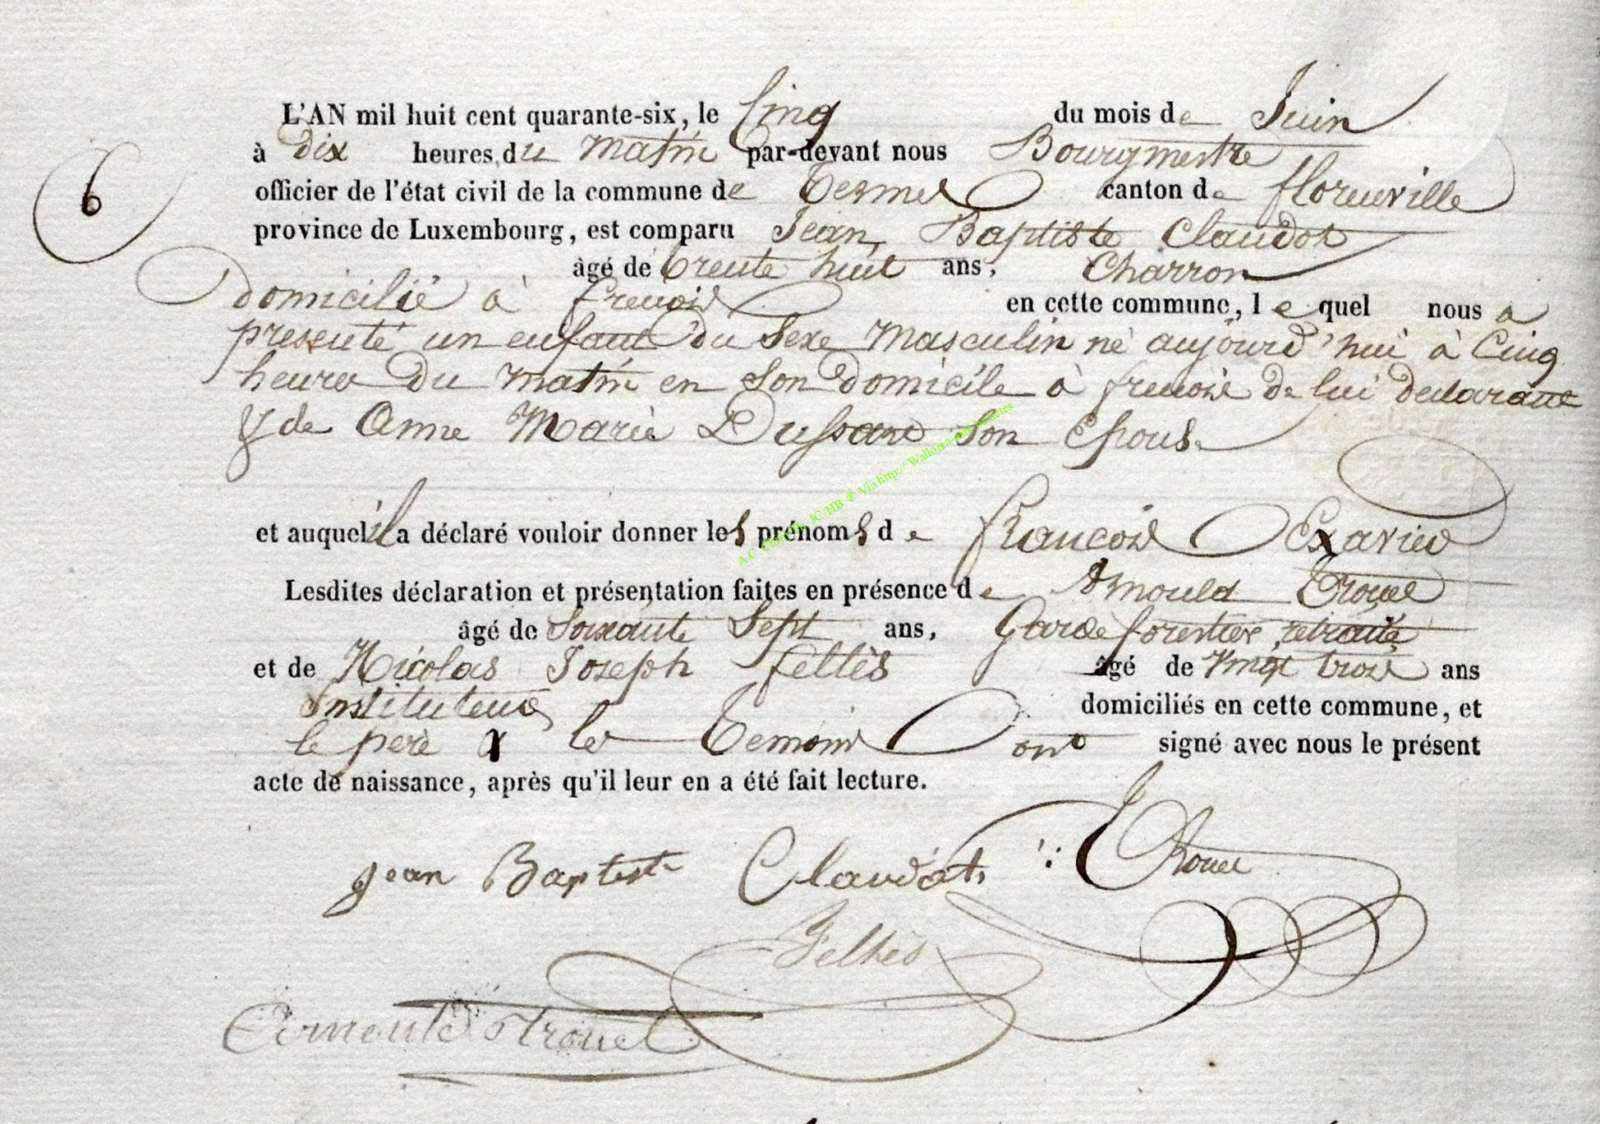 L'AN mil huit cent quarante-six, le Cinq du mois de Juin
à dix heures du matin par-devant nous Bourgmestre
6
officier de l'état civil de la commune de Termes canton de florenville
province de Luxembourg, est comparu Jean Baptiste Claudot
âgé de trente huit ans, Charron
domicilié à frenois en cette commune, lequel nous a
presenté un enfant du Sexe Masculin né aujourd'hui à Cinq
heures du matin en son domicile à frenois de lui déclarant
& de Anne Marie Dussard son Epouse
et auquel il a déclaré vouloir donner les prénoms de françois Exavier
Lesdites déclaration et présentation faites en présence de Arnould Trouet
âgé de soixante Sept ans, Garde forestier, retraité
et de Nicolas Joseph feltès âgé de vingt trois ans
Instituteur domiciliés en cette commune, et
le père & les temoins ont signé avec nous le présent
acte de naissance, après qu'il leur en a été fait lecture.
Jean Baptiste Claudot Trouet
Feltès
Arnould trouet